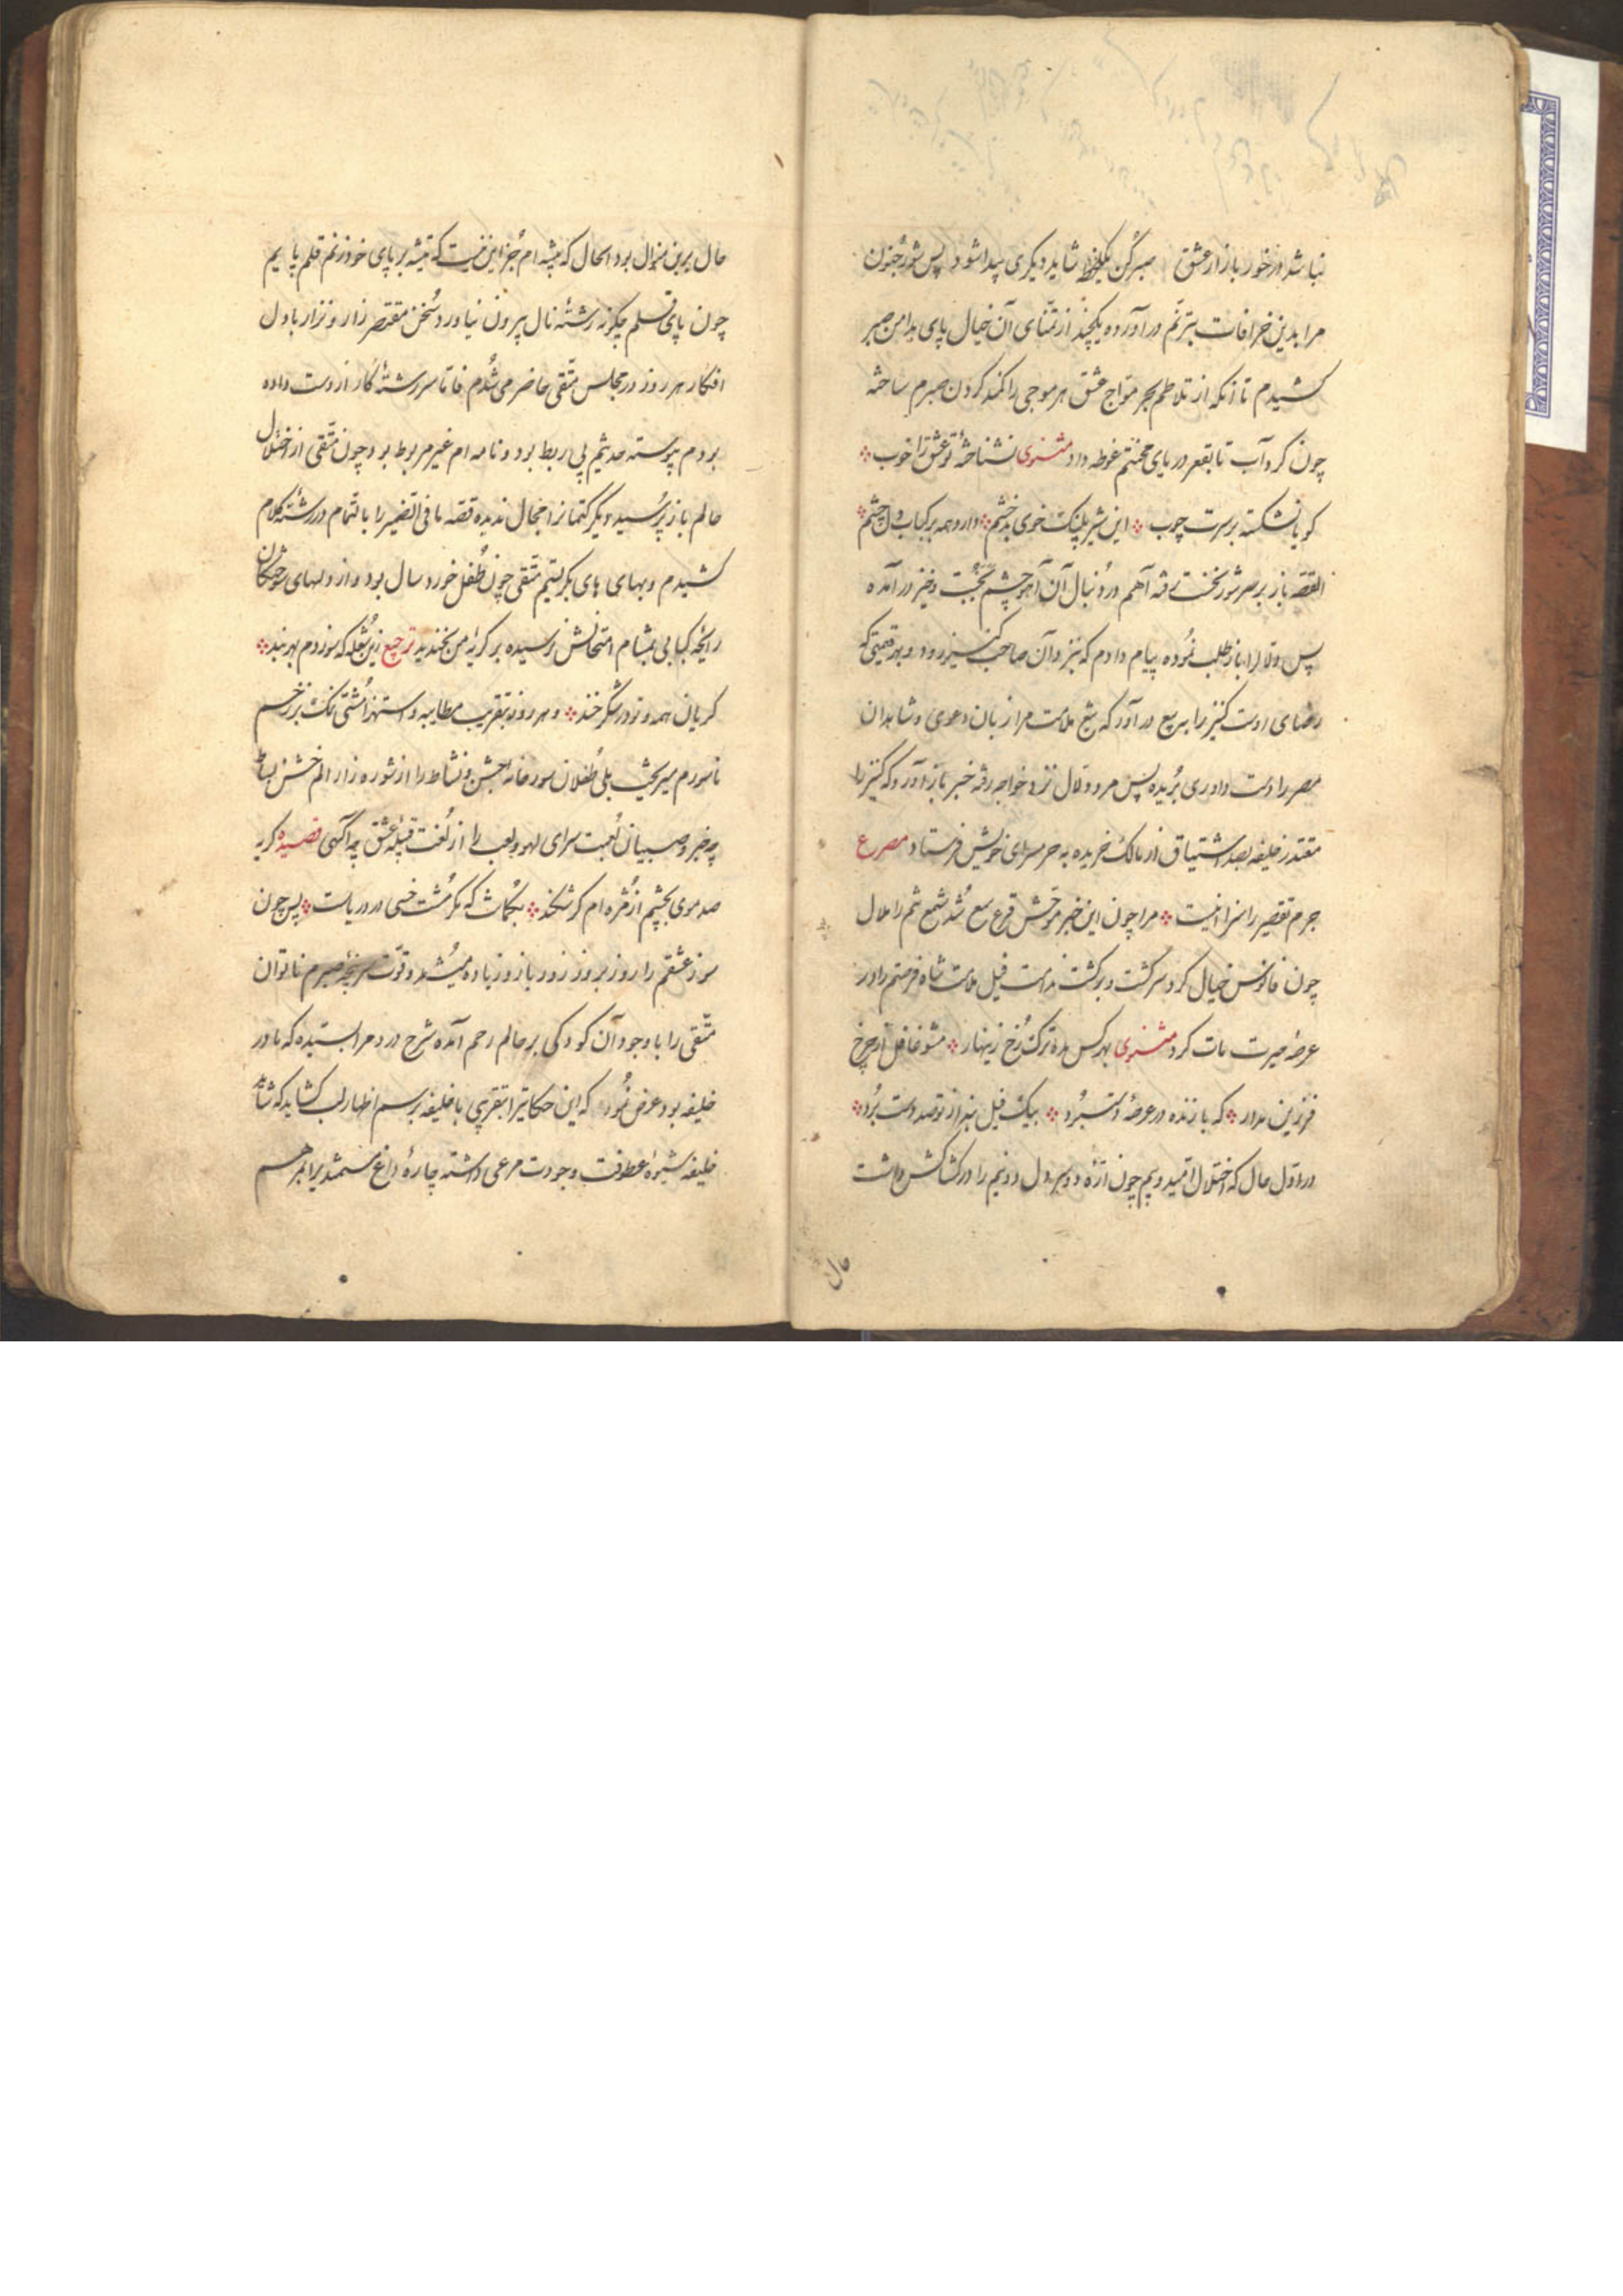 نباشد در خور بازار عشق صبر کن یکلحظه شاید دیگری پیدا شود پس شور جنون
مرا بدین خرافات بترنم در آورده یکچند از تمنای آن خیال پای بدامن صبر
کشیدم تا آنکه از تلاطم بحر مواج عشق هر موجی را کمند گردن صبرم ساخته
چون گرداب تا بقعر دریای محنتم غوطه داد مثنوی نشناختهٔ تو عشق را خوب
گویا نشکسته بر سرت چوب این شیر پلنگ خوی بدخشم دارد همه بر کباب دل چشم
القصه باز بر سر شور بخت رفته آهم در دنبال آن آهو چشم در آمده
پس دلال را باز طلب نموده پیام دادم که نزد آن صاحب کنیز رود و بهر قیمتی که
رضای اوست کنیز را ببیع در آور که تیغ ملامت مرا زبان دعوی و شاهدان
مصر را دست داوری بریده پس مرد دلال نزد خواجه رفته خبر باز آورد که کنیز را
مقتدر خلیفه بصد اشتیاق از مالک خریده به حرمسرای خویش فرستاد مصرع
جرم تقصیر را سزا نیست مرا چون این خبر موحش قرع سمع شد شمع شم را ملال
چون فانوس خیال گرد سر گشت و برگشت فیل ملامت شاه فرصتم را در
عرصهٔ حیرت مات کرد مثنوی بهر کس مده ترک رخ زینهار مشو غافل از چرخ
فرزین مدار که بازنده در عرصهٔ دستبرد بیک فیل بند از تو صد دست برد
در اول حال که اختلال امید و بیم چون ارهٔ دو سر دل دو نیم را در کشاکش داشت
حال
حال برین منوال بود الحال که پیشه ام جز این نیست که تیشه بر پای خود زنم قلم پایم
چون پای قلم چگونه رشته نال بیرون نیاورد سخن مختصر زار و نزار با دل
افکار هر روز در مجلس متقی حاضر می شدم فاما سر رشتهٔ کار از دست داده
بودم پیوسته حدیثم بی ربط بود و نامه ام غیر مربوط بود چون متقی از اختلال
حالم باز پرسید دیگر کتمانرا مجال ندیده قصه ما فی الضمیر را بالتمام در رشتهٔ کلام
کشیدم و بهای های بگریستم متقی چون طفل خورد سال بود و از دلهای سوختگان
رایحه کبابی بمشام امتحانش نرسیده بر گریهٔ من بخندید ترجیع زین شعله که سوزدم بهر بند
گریان همه و تو در شکر خند و هر روز بتقریب مطایبه و استهزا مشتی نمک بر زخم
ناسورم میریخت بلی طفلان سور خانه جشن و نشاط را از شوره زار الم خشن بساط
چه خبر و صبیان لعبت سرای لهو و لعب را از لغت قبیله عشق چه آگهی قصیده گریه
صد موی بچشم از مژه ام گر شکند که مگر مشت خسی در دریاست پس چون
سوز عشقم را روز بروز زور بازو زیاده میشد و قوت سر پنجهٔ صبرم ناتوان
متقی را با وجود آن کودکی بر حالم رحم آمده شرح درد مرا بستیده که مادر
خلیفه بود عرض نمود که این حکایت را بتقریبی با خلیفه برسم اظهار لب کشاید که شاید
خلیفه شیوهٔ عطوفت و جودت مرعی داشته چارهٔ داغ مستمند را بمرهم